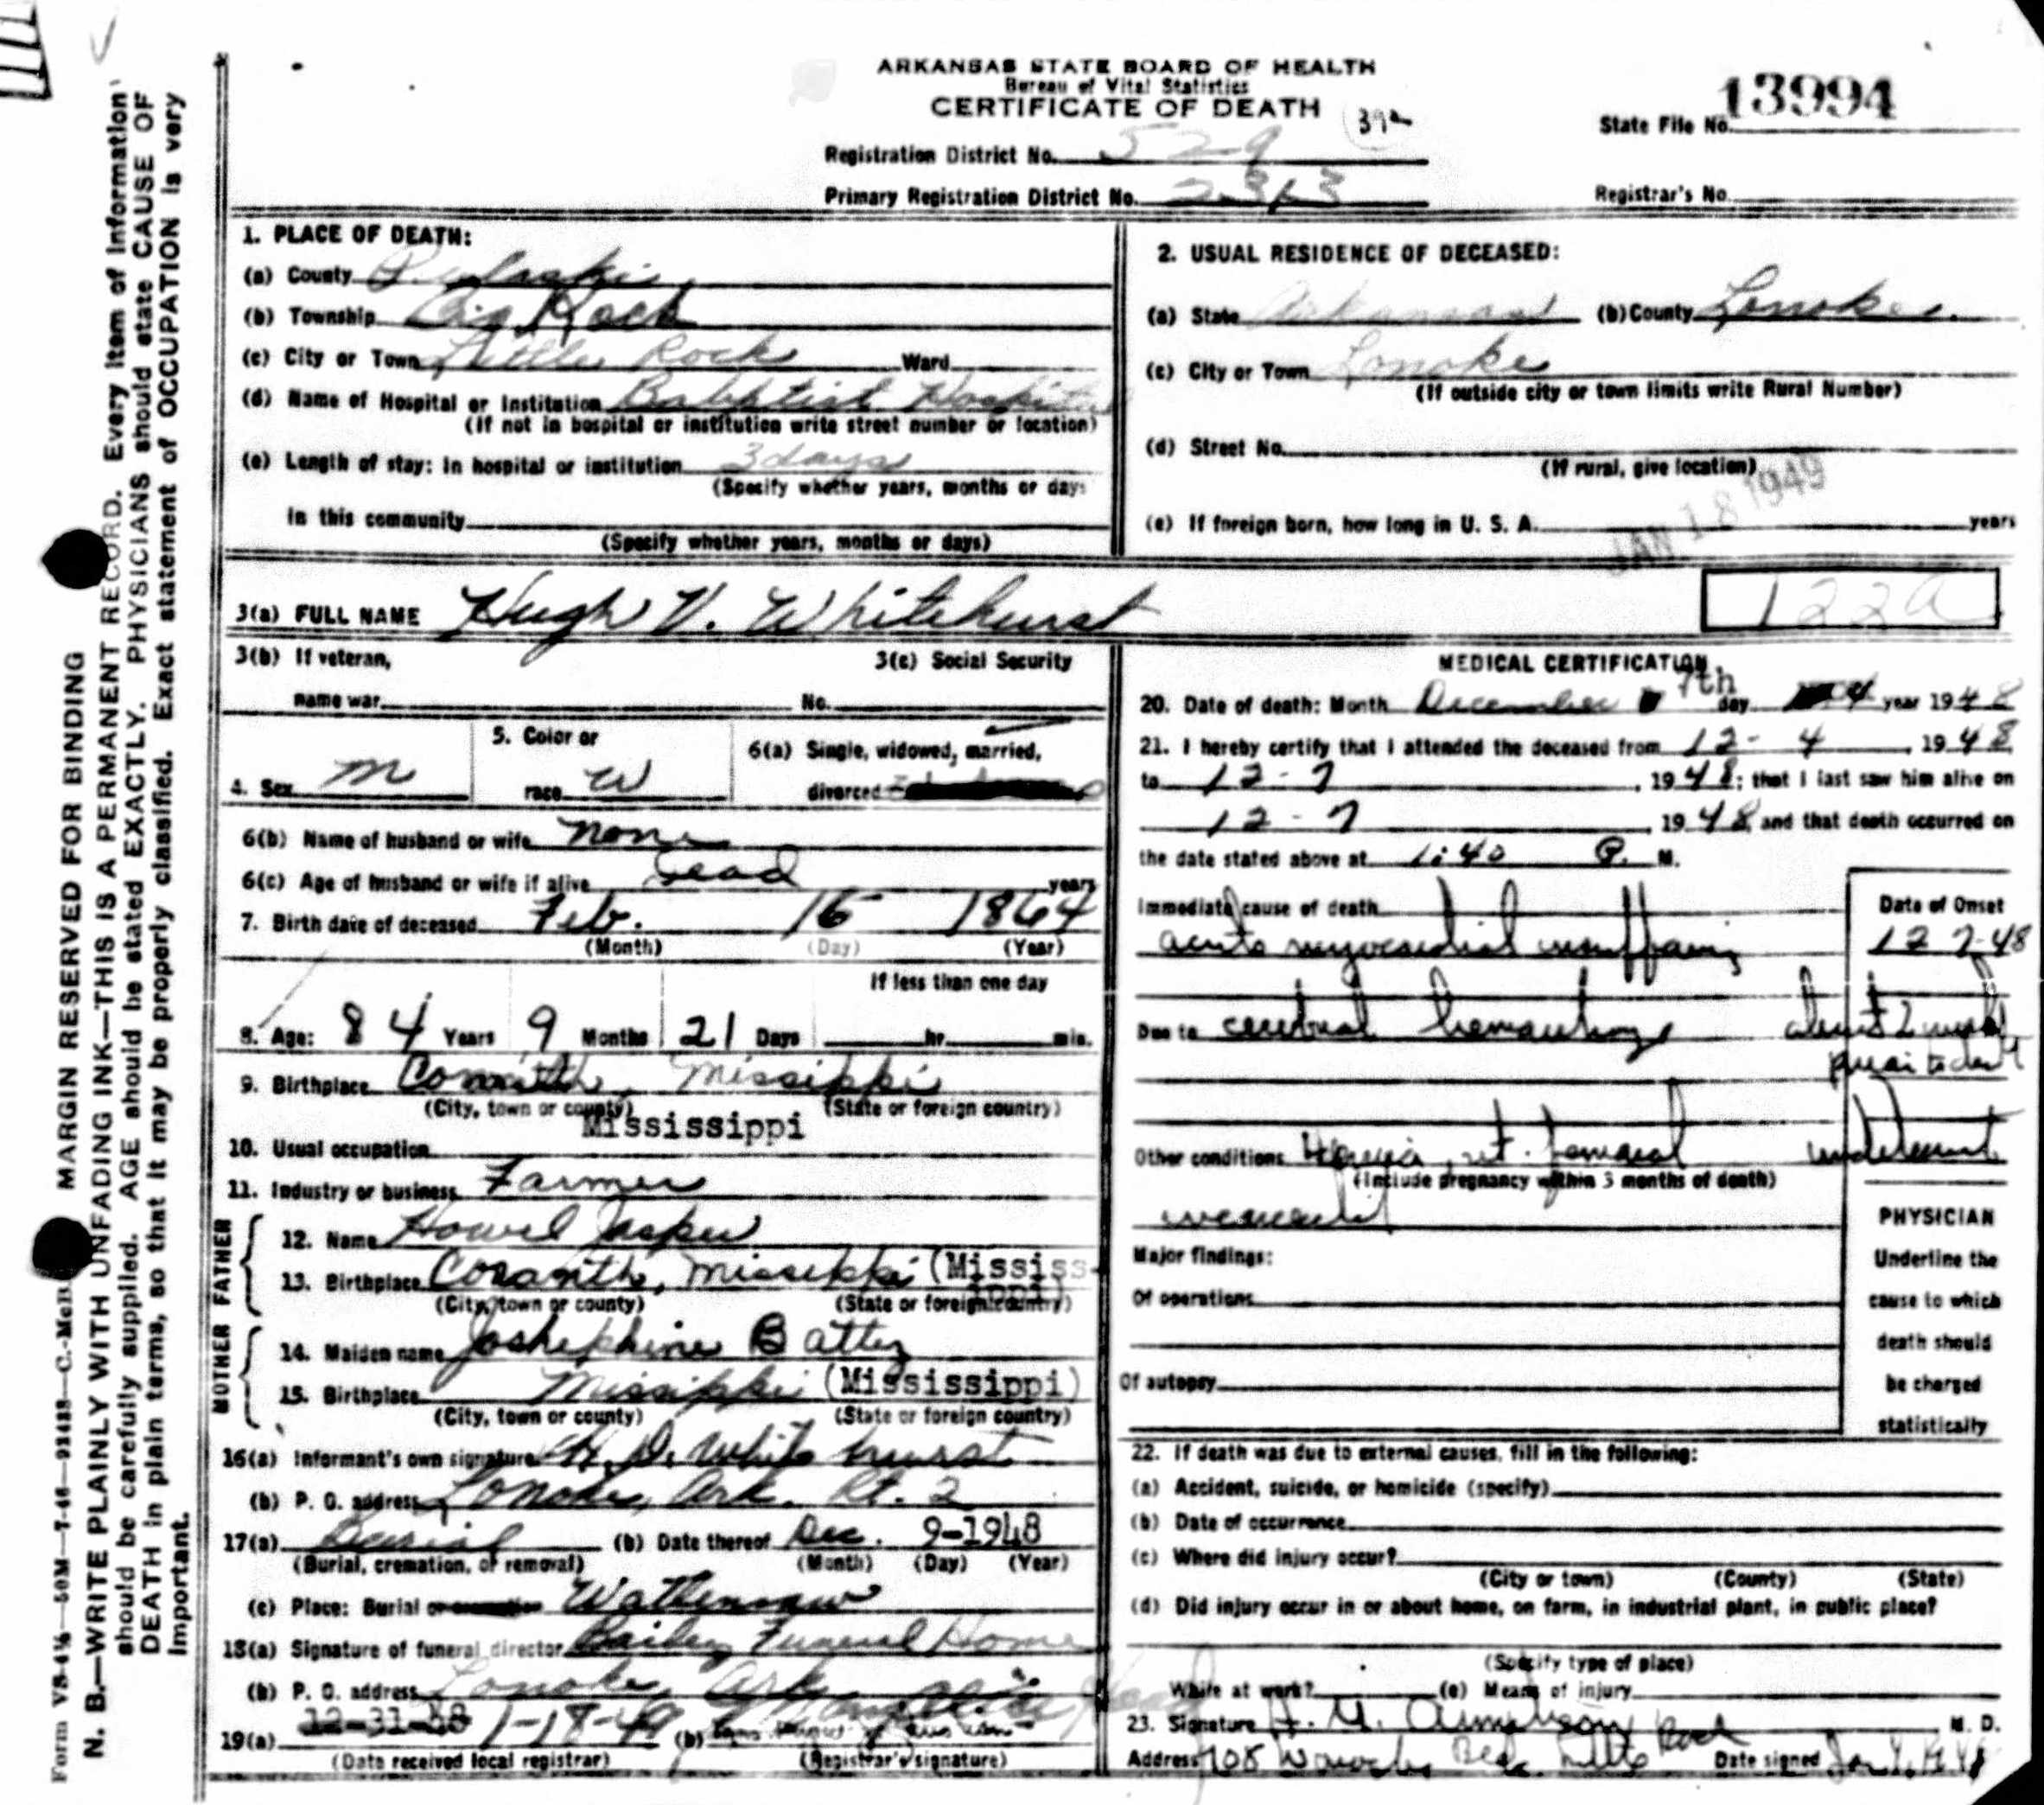 ARKANSAS STATE BOARD OF HEALTH
Bureau of Vital Statistics
CERTIFICATE OF DEATH
State File No. 13994
Registration District No. 529
Primary Registration District No. 2313
Registrar's No.
1. PLACE OF DEATH:
(a) County Pulaski
(b) Township Big Rock
(c) City or Town Little Rock Ward
(d) Name of Hospital or Institution Babptist Hospital
(If not in hospital or institution write street number or location)
(e) Length of stay: In hospital or institution 3 days
(Specify whether years, months or days
In this community
(Specify whether years, months or days)
2. USUAL RESIDENCE OF DECEASED:
(a) State Arkansas (b) County Lonoke
(c) City or Town Lonoke
(If outside city or town limits write Rural Number)
(d) Street No.
(If rural, give location)
JAN 18 1949
(e) If foreign born, how long in U. S. A. years
3(a) FULL NAME Hugh V. Whitehurst
122a
3(b) If veteran,
name war
3(c) Social Security
No.
4. Sex M
5. Color or
race W
6(a) Single, widowed, married,
divorced
6(b) Name of husband or wife None
6(c) Age of husband or wife if alive Dead years
7. Birth date of deceased Feb. 16 1864
(Month) (Day) (Year)
If less than one day
8. Age: 84 Years 9 Months 21 Days hr. min.
9. Birthplace Missippi
(City, town or county) (State or foreign country)
Mississippi
10. Usual occupation
11. Industry or business Farmer
FATHER
12. Name Howel Jasper
13. Birthplace Coranth, Missippi (Mississ-
ippi)
(City, town or county) (State or foreign country)
MOTHER
14. Maiden name Joshephine Battey
15. Birthplace Missippi (Mississippi)
(City, town or county) (State or foreign country)
16(a) Informant's own signature H. D. Whitehurst
(b) P. O. address Lonoke, Ark. Rt. 2
17(a) Burial (b) Date thereof Dec. 9-1948
(Burial, cremation, or removal) (Month) (Day) (Year)
(c) Place: Burial or cremation Wattensaw
18(a) Signature of funeral director Bailey Funeral Home
(b) P. O. address Lonoke, Ark
19(a) 12-31-48 1-18-49 (b)
(Date received local registrar) (Registrar's signature)
MEDICAL CERTIFICATION
20. Date of death: Month December 7th day year 1948
21. I hereby certify that I attended the deceased from 12-4, 1948
to 12-7, 1948; that I last saw him alive on
12-7 1948 and that death occurred on
the date stated above at 1:40 P. M.
Immediate cause of death
acute myocardial insufficiency
Date of Onset
12-7-48
Due to cerebral hemorrhage about 2 weeks
prior to death
Other conditions Hernia, rt. femoral undeterment
(Include pregnancy within 3 months of death)
Major findings:
Of operations
Of autopsy
PHYSICIAN
Underline the
cause to which
death should
be charged
statistically
22. If death was due to external causes, fill in the following:
(a) Accident, suicide, or homicide (specify)
(b) Date of occurrence
(c) Where did injury occur?
(City or town) (County) (State)
(d) Did injury occur in or about home, on farm, in industrial plant, in public place?
(Specify type of place)
While at work? (e) Means of injury
23. Signature M. D.
Address 708 Bldg. Little Rock Date signed
MARGIN RESERVED FOR BINDING
N. B.—WRITE PLAINLY WITH UNFADING INK—THIS IS A PERMANENT RECORD. Every item of information
should be carefully supplied. AGE should be stated EXACTLY. PHYSICIANS should state CAUSE OF
DEATH in plain terms, so that it may be properly classified. Exact statement of OCCUPATION is very
important.